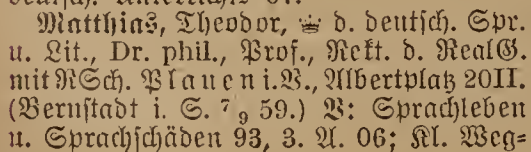 Matthias, Theodor, ♕ d. deutsch. Spr.
u. Lit., Dr. phil., Prof., Rekt. d. RealG.
mit RSch. Plauen i. V., Albertplatz 20II.
(Bernstadt i. S. 7/9 59.) V: Sprachleben
u. Sprachschäden 93, 3. A. 06; Kl. Weg=